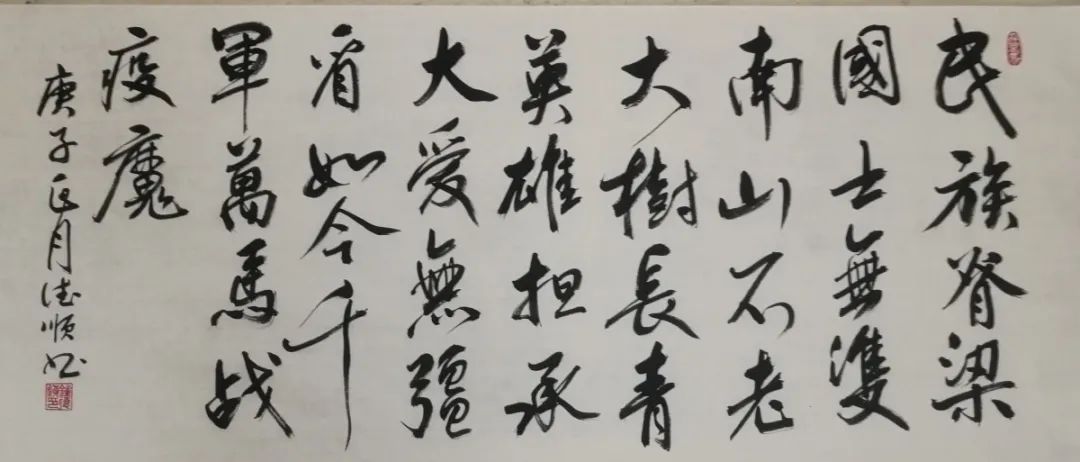 民族脊梁
國士無雙
南山不老
大樹長青
英雄担承
大愛無疆
看如今千
軍萬馬战
疫魔
庚子正月德順书